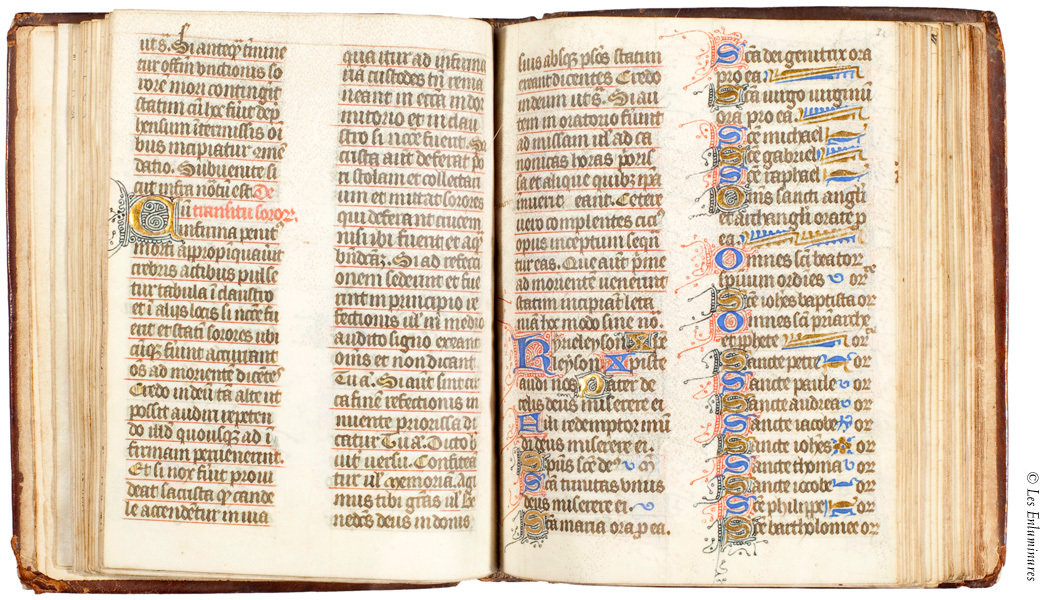 ut s̄. Si anteq̄ t̄mine
tur offm̄ vnctionis so
rore mori contingit
statim cū hec fuit dep̄
hensum ītermissis oī
bus incipiatur 
datio. Subuenite si
cut infra notū est. De
Cū transitu soror.
infirma penit᷒
morti appropiquauit
crebris actibus pulse
tur tabula ī claustro
et ī alijs locis si ncc̄e fu
erit et statī sorores ubi
cūq̄ fuint accurrant
os ad moriente dicētes
Credo in deū tā alte ut
possit audiri repeten
do illd quousq̄ ad ī
firmam peruenerint.
Et si nox fuit proui
deat sacrista q̄ cande
le accendetur in uia
qua itur ad infirma
uiā custodes tn̄ rema
neant in ecca in dor
mitorio et in clau
stro si ncce fuerit. Sa
crista aut deferat p̄
ri stolam et collectari
um et mittat sorores
qui deferant crucem
nisi ibi fuerit et aq̄
bn̄dcā. Si ad refecti
onem sederint et fue
rint in principio re
fectionis ul̄ in medio
audito signo exeant
om̄s et non dicant
Tu a. Si aut sint cir
ca finē refectionis in
nuente priorissa di
catur Tu a. Dicto b
uit versu. Confitea
tur ul̄ Memoria. Agi
mus tibi grās ul̄ be
nedc̄s deus in donis
suis absq̄ pslōs statim
exeant dicentes Credo
in deum ut s̄. Si au
tem in oratorio fūint
ad missam ul̄ ad ca
nonicas horas poris
sa et alique quibz ipā
innuerit eant. Cetere
uero complentes cici᷒
opus inceptum seqn̄
tur eas. Que aut p̄me
ad morientē uenerint
statim incipiāt leta
niā hoc modo sine no.
Kyrieleyson Xpe
leyson. Xpiste
audi nos Pater de
celis deus miserere ei
Fili redemptor mū
di deus miserere ei.
Spūs scē de᷒ m̄
Scā trinitas vnus
deus miserere ei.
Scā maria ora p ea.
Scā dei genitrix ora
pro ea
Scā uirgo uirginū
ora pro ea.
Scē michael
Scē gabriel
Scē raphael
Om̄s sancti angli
et archangli orate p
ea.
Omnes scī beator
spirituum ordines or
Scē iohēs baptista or
Omnes scī priarche
et pphete or᷒
Sancte petre or
Sancte paule or
Sancte andrea or
Sancte iacobe or
Sancte iohēs or
Sancte thoma or
Sancte iacobe or
Scē philippe or
Scē bartholomee or
© Les Enluminures